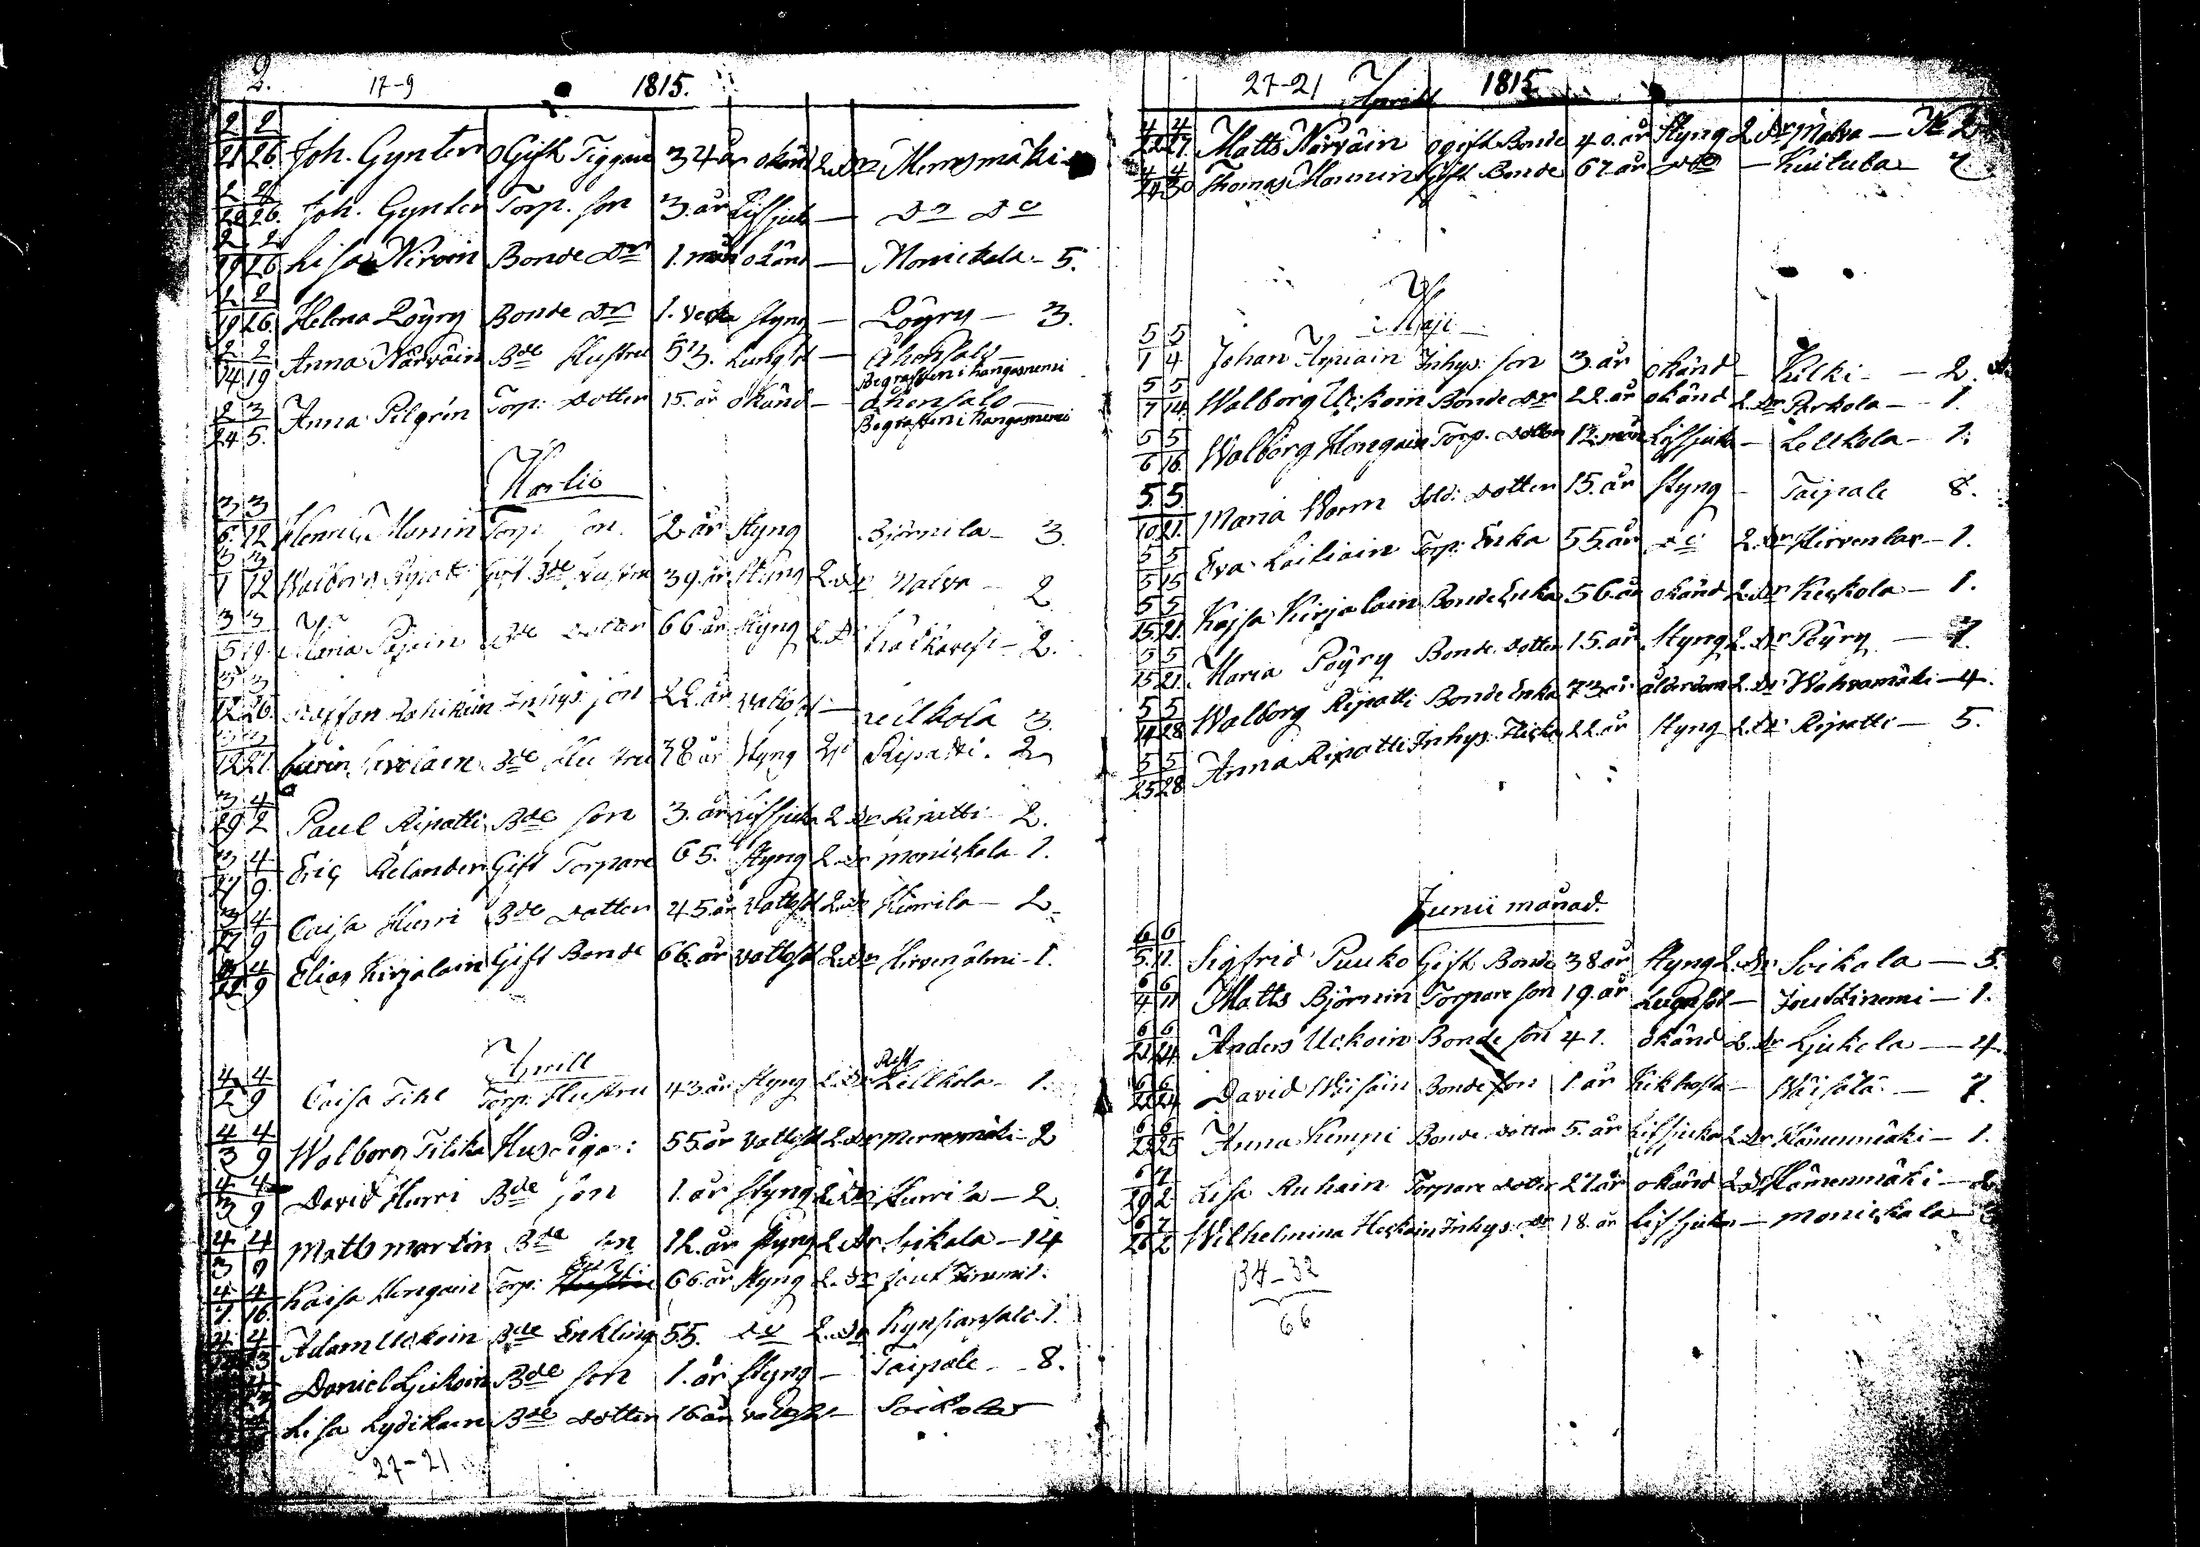 2.
17-9 1815.
2/21 2/26. Joh. Gynter Ogift Tiggare 34 år okänd 2. Dr Merrosmäki
2/20 2/26. Joh. Gynter Torp. son 3. år Lifsjuk — Do Do
2/19 2/26 Lisa Niroin Bonde Dr 1. mån okänd — Monickala - 5.
2/19 2/26. Helena Pöyry Bonde Dr 1. vecka Styng — Pöyry — 3.
2/14 2/19 Anna Närväin Bde Hustru 53. Lungsot — Ahonsalo —
Begrafven i Kangasniemi
2/24 3/5. Anna Pilgrin Torp: Dotter 15. år okänd — Ahonsalo —
Begrafven i Kangasniemi
Martii
3/6. 3/12 Henric Monin Torp. son. 2 år Styng Björnila — 3.
3/1 3/12 Walborg Ripatti Gift Bde Hustru 39. år Styng 2. Dr Malva — 2
3/5 3/19. Maria Bde Dotter 66. år Styng 2. Dr — 2.
3/12 3/26. Staffan Inhys. son 22. år Vattsot — 3.
3/12 3/21. Bde Hustru 38 år Styng 2. Ripatti. 2
3/29 4/2 Paul Ripatti Bde son 3. år Lifsjuka 2. Dr Ripatti 2.
3/27 4/9. Eric Relander Gift Torpare 65. Styng 2. Dr Monickala 1.
3/27 4/9 Caisa Hurri Bde Dotter 45. år Vattsot 2. Dr Hurrila — 2.
4/9 Elias Kirjalain Gift Bonde 66. år Vattsot 2. Dr Hirvensalmi - 1.
Aprill
4/2 4/9 Caisa Tihl Torp: Hustru 43. år Styng 2. Dr Lelkola - 1.
4/3 4/9 Walborg Tilika Hus Piga: 55. år Vattsot 2. Dr Merrosmäki - 2
4/3 4/9 David Hurri Bde son 1. år Styng 2. Dr Hurrila — 2.
4/3 4/9 Matts Martin Bde son 12. år Styng 2. Dr Soikala — 14
4/7. 4/16. Kaisa Hongain Torp: 66. år Styng 2. Dr 1.
4 4 Adam Uckoin Bde Enkling 55. Do 2. Dr Kynsiansalo. 1.
Daniel Ljukoin Bde son 1. år Styng — Taipale — 8.
Lisa Lydikain Bde Dotter 16 år Vattsot — Soikola
27-21
27-21 Aprill 1815
4 4/27 Matts Närväin Ogift Bonde 40. år Styng 2. Dr Malva — No 2
4/24 4/30 Thomas Hannin Gift Bonde 67. år Do — Kuitula — 7
Maji
5/1 5/4 Johan Inhys. son 3. år okänd — Kilki — 2.
5/7 5/14 Walborg Uckoin Bonde Dr 22. år okänd 2. Dr Parkola — 1.
5/6 5/16. Walborg Hongain Torp. Dotter 12. mån Lifsjuka — Lelkola — 1.
5/10 5/21. Maria Worm Sold: Dotter 15. år Styng — Taipale 8.
5/5 5/15 Eva Laitiain Torp: Enka 55. år Do 2. Dr Hirvenlax — 1.
5/15 5/21. Kajsa Kirjalain Bonde Enka 56. år okänd 2. Dr Keskola — 1.
5/15 5/21. Maria Pöyry Bonde. Dotter 15. år Styng 2. Dr Pöyry — 7.
5/14 5/28 Walborg Ripatti Bonde Enka 73 år ålderdom 2. Dr Wahvamäki — 4.
5/25 5/28 Anna Ripatti Inhys: Flicka 22. år Styng 2. Dr Ripatti — 5.
Junii månad.
6/5. 6/11. Sigfrid Puuko Gift Bonde 38 år Styng 2. Dr Soikala — 3.
6/4 6/11 Matts Björnin Torpare son 19. år Lungsot — Jouttiniemi — 1.
6/21 6/24 Anders Uckoin Bonde son 41. okänd 2. Dr Ljukola — 4.
6/22 6/24 David Wäisäin Bonde son 1. år Kikhosta — Wäisälä. — 7.
6/23 6/25 Anna Kempi Bonde. Dotter 5. år Lifsjuka 2. Dr Hämenmäki — 1.
6/29 7/2 Lisa Auhain Torpare Dotter 27. år okänd 2. Dr Hämenmäki —
6/26 7/2 Wilhelmina Heiskain Inhys: Dr 18. år Lifsjuka — Monickala —
34-32
66